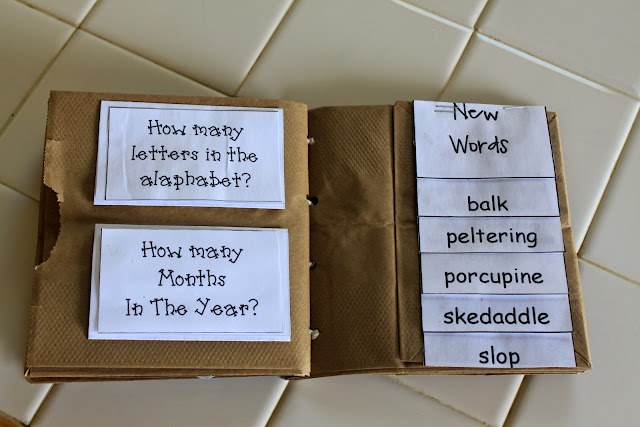 How many
letters in the
alaphabet?
How many
Months
In The Year?
New
Words
balk
peltering
porcupine
skedaddle
slop